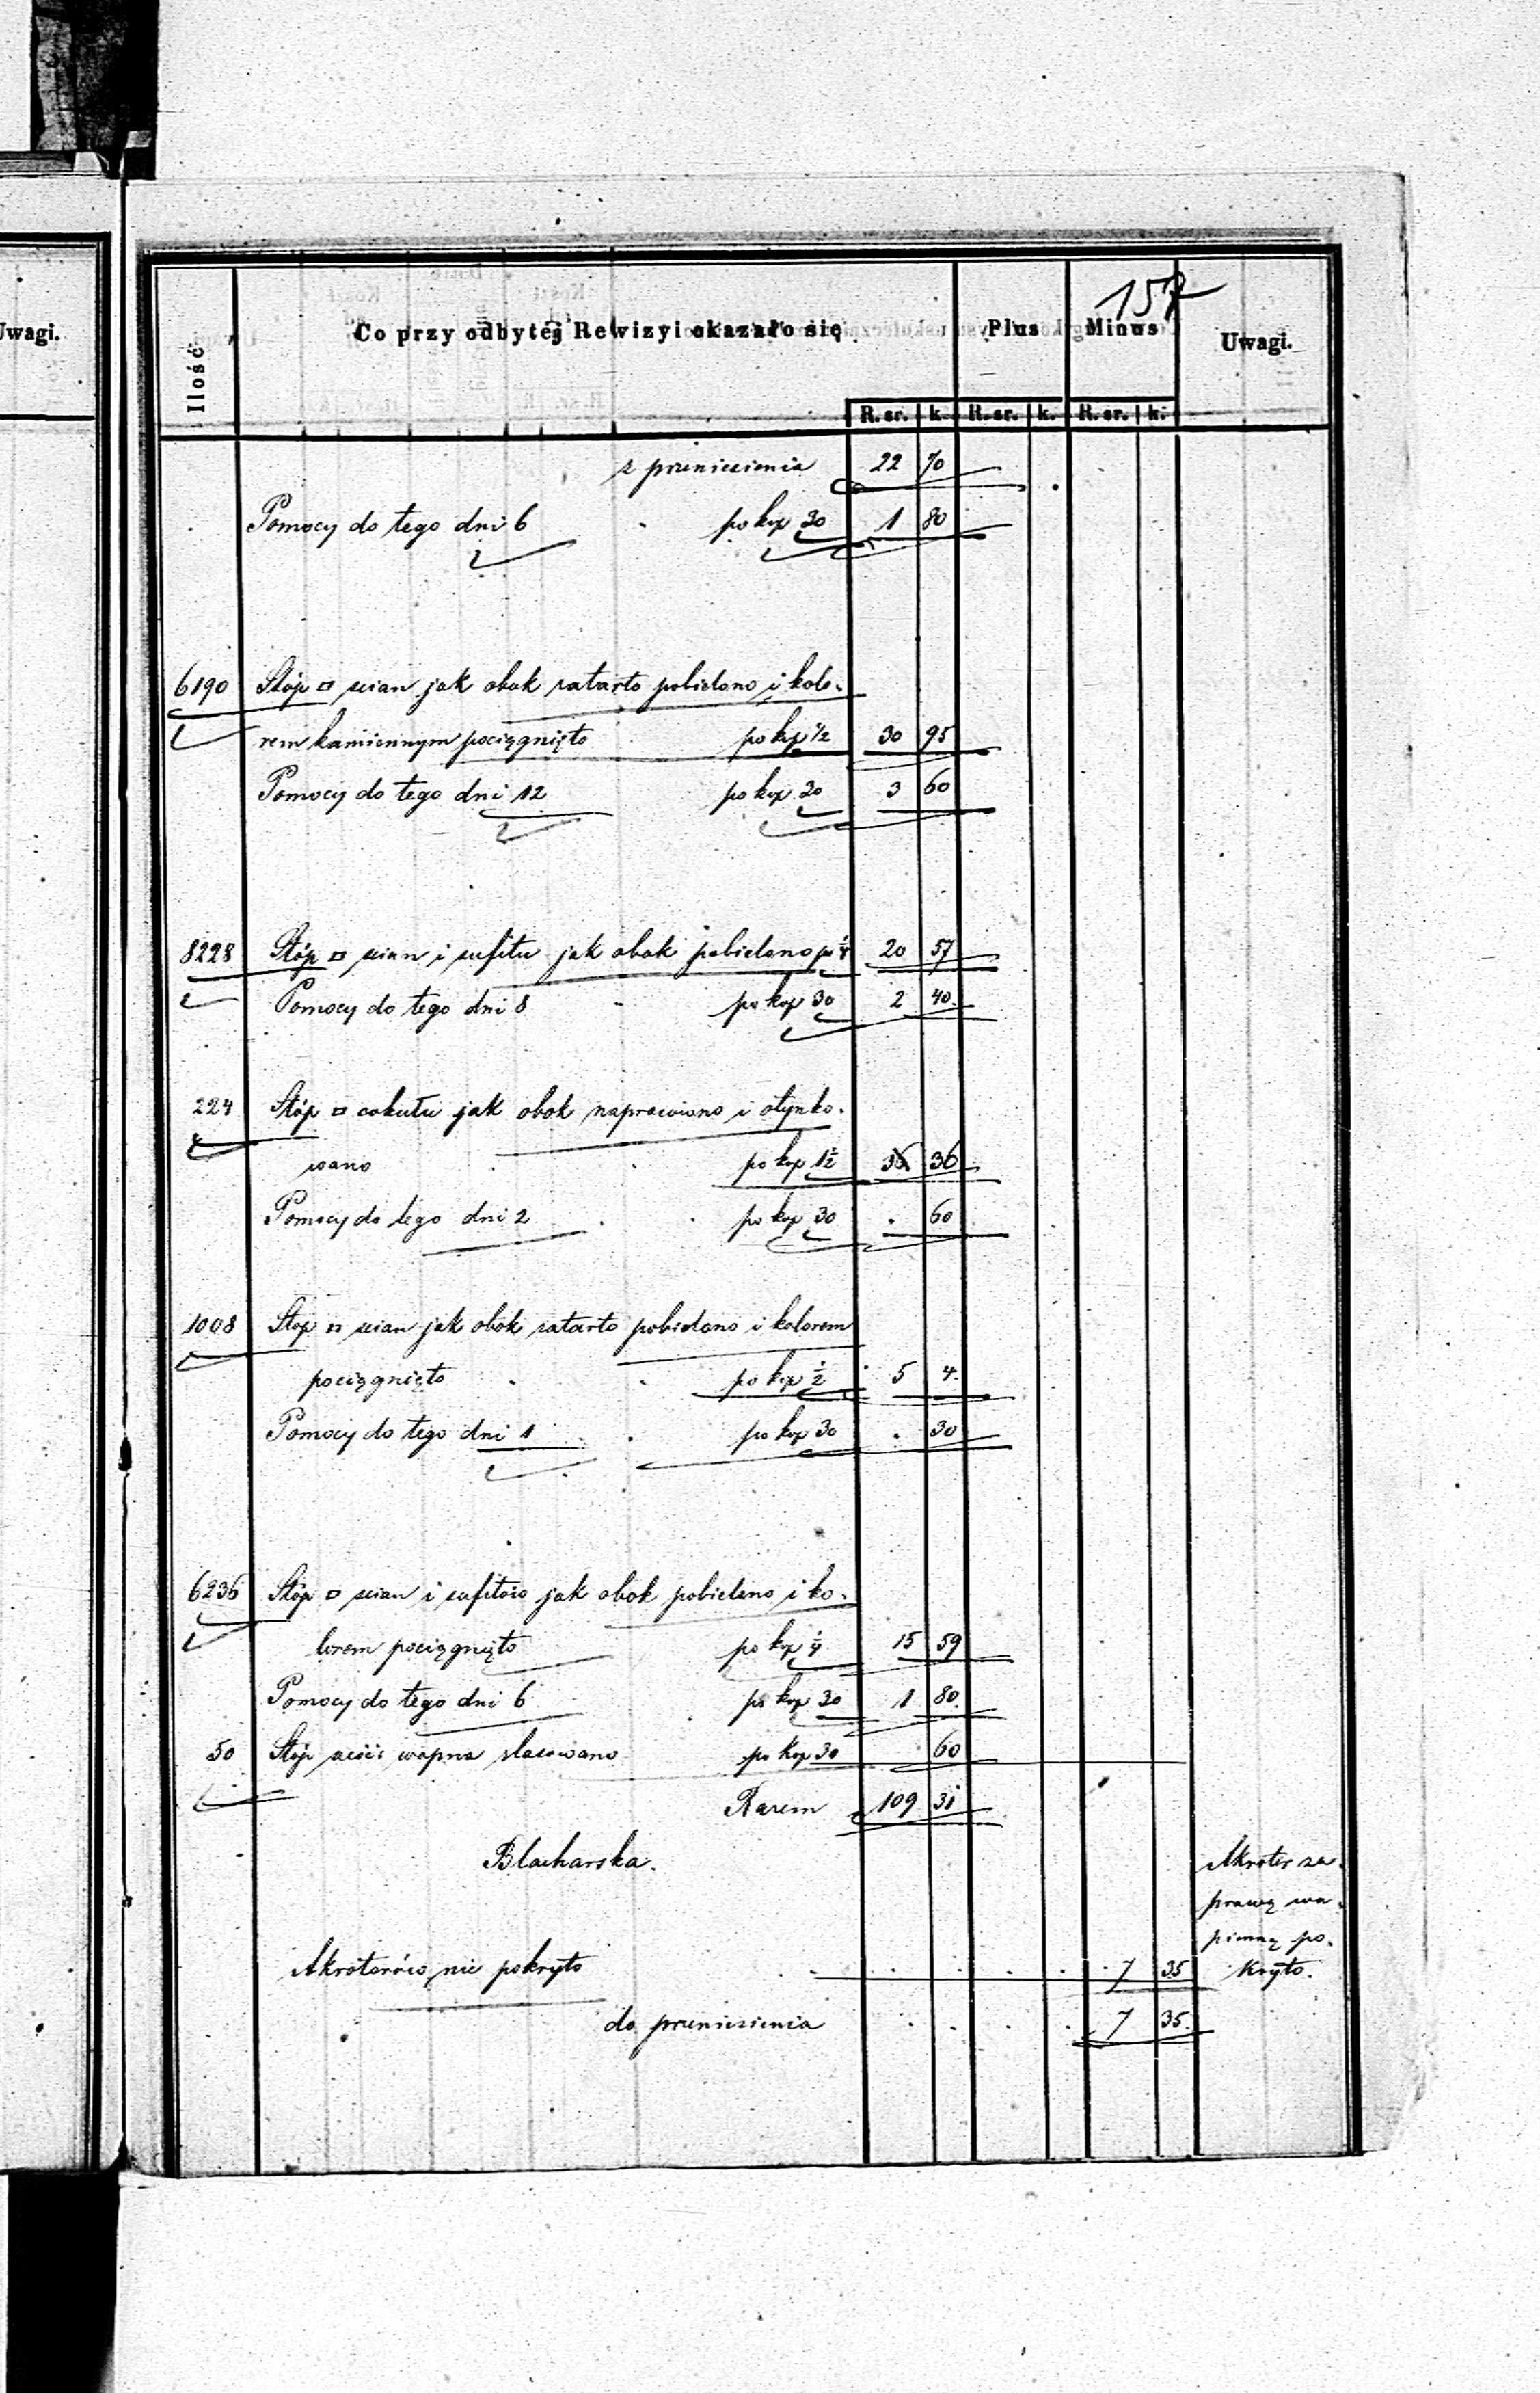 157
Uwagi.
Ilość
Co przy odbytéj Rewizyi okazało się
Plus
Minus
Uwagi.
R. sr. k. R. sr. k. R. sr. k.
z przeniesienia 22 70
Pomocy do tego dni 6 po kop 30 1 80
6190 Stóp □ scian jak obok zatarto pobielono i kolo-
rem kamiennym pociągnięto po kop ½ 30 95
Pomocy do tego dni 12 po kop 30 3 60
8228 Stóp □ scian i sufitu jak obok pobielono po ¼ 20 57
Pomocy do tego dni 8 po kop 30 2 40
224 Stóp □ cokułu jak obok naprawiono i otynko-
wano po kop 1½ 3 36
Pomocy do tego dni 2 po kop 30 . 60
1008 Stóp □ scian jak obok zatarto pobielono i kolorem
pociągnięto po kop ½ 5 4
Pomocy do tego dni 1 po kop 30 . 30
6236 Stóp □ scian i sufitów jak obok pobielono i ko-
lorem pociągnięto po kop ¼ 15 59
Pomocy do tego dni 6 po kop 30 1 80
50 Stóp sześć wapna zlasowano po kop 30 60
Razem 109 31
Blacharska.
Akroter za-
prawą wa-
pienną po-
Akroterów nie pokryto 7 35 kryto.
do przeniesienia 7 35